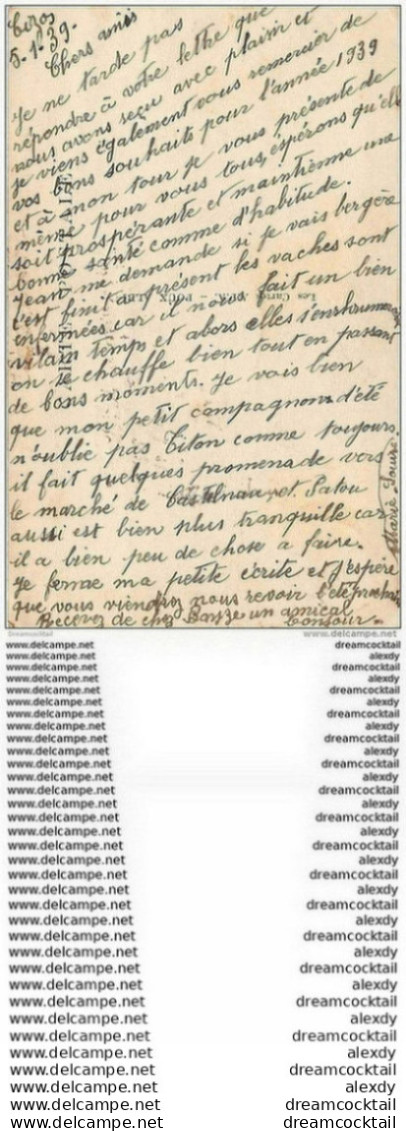 Cizos
5-1-39.
Chers amis
Je ne tarde pas
répondre à votre lettre que
nous avons reçu avec plaisir et
je viens également vous remercier de
vos bons souhaits pour l'année 1939
et à mon tour je vous présente de
même pour vous tous, espérons qu'elle
soit prospérante et maintienne une
bonne santé comme d'habitude.
Jean me demande si je vais bergère
c'est finit à présent les vaches sont
enfermées car il nous fait un bien
vilain temps et abors elles s'enrhumerai
on se chauffe bien tout en passant
de bons moments. Je vais bien
que mon petit compagnon d'été
n'oublie pas Titon comme toujours
il fait quelques promenade vers
le marché de Castelnau et Patou
aussi est bien plus tranquille car
il a bien peu de chose a faire.
Je ferrae ma petite écrite et J'espère
que vous viendrez nous revoir l'été prochain
Recevez de chez un amical
bonjour.
Marie Louise
Dreamcocktail www.delcampe.net
www.delcampe.net dreamcocktail
www.delcampe.net alexdy
www.delcampe.net dreamcocktail
www.delcampe.net alexdy
www.delcampe.net dreamcocktail
www.delcampe.net alexdy
www.delcampe.net dreamcocktail
www.delcampe.net alexdy
www.delcampe.net dreamcocktail
www.delcampe.net alexdy
www.delcampe.net dreamcocktail
www.delcampe.net alexdy
www.delcampe.net dreamcocktail
www.delcampe.net alexdy
www.delcampe.net dreamcocktail
www.delcampe.net alexdy
www.delcampe.net dreamcocktail
www.delcampe.net alexdy
www.delcampe.net dreamcocktail
www.delcampe.net alexdy
www.delcampe.net dreamcocktail
www.delcampe.net alexdy
www.delcampe.net dreamcocktail
www.delcampe.net alexdy
www.delcampe.net dreamcocktail
www.delcampe.net alexdy
www.delcampe.net dreamcocktail
www.delcampe.net alexdy
www.delcampe.net dreamcocktail
www.delcampe.net alexdy
www.delcampe.net dreamcocktail
www.delcampe.net alexdy
www.delcampe.net dreamcocktail
www.delcampe.net alexdy
www.delcampe.net dreamcocktail